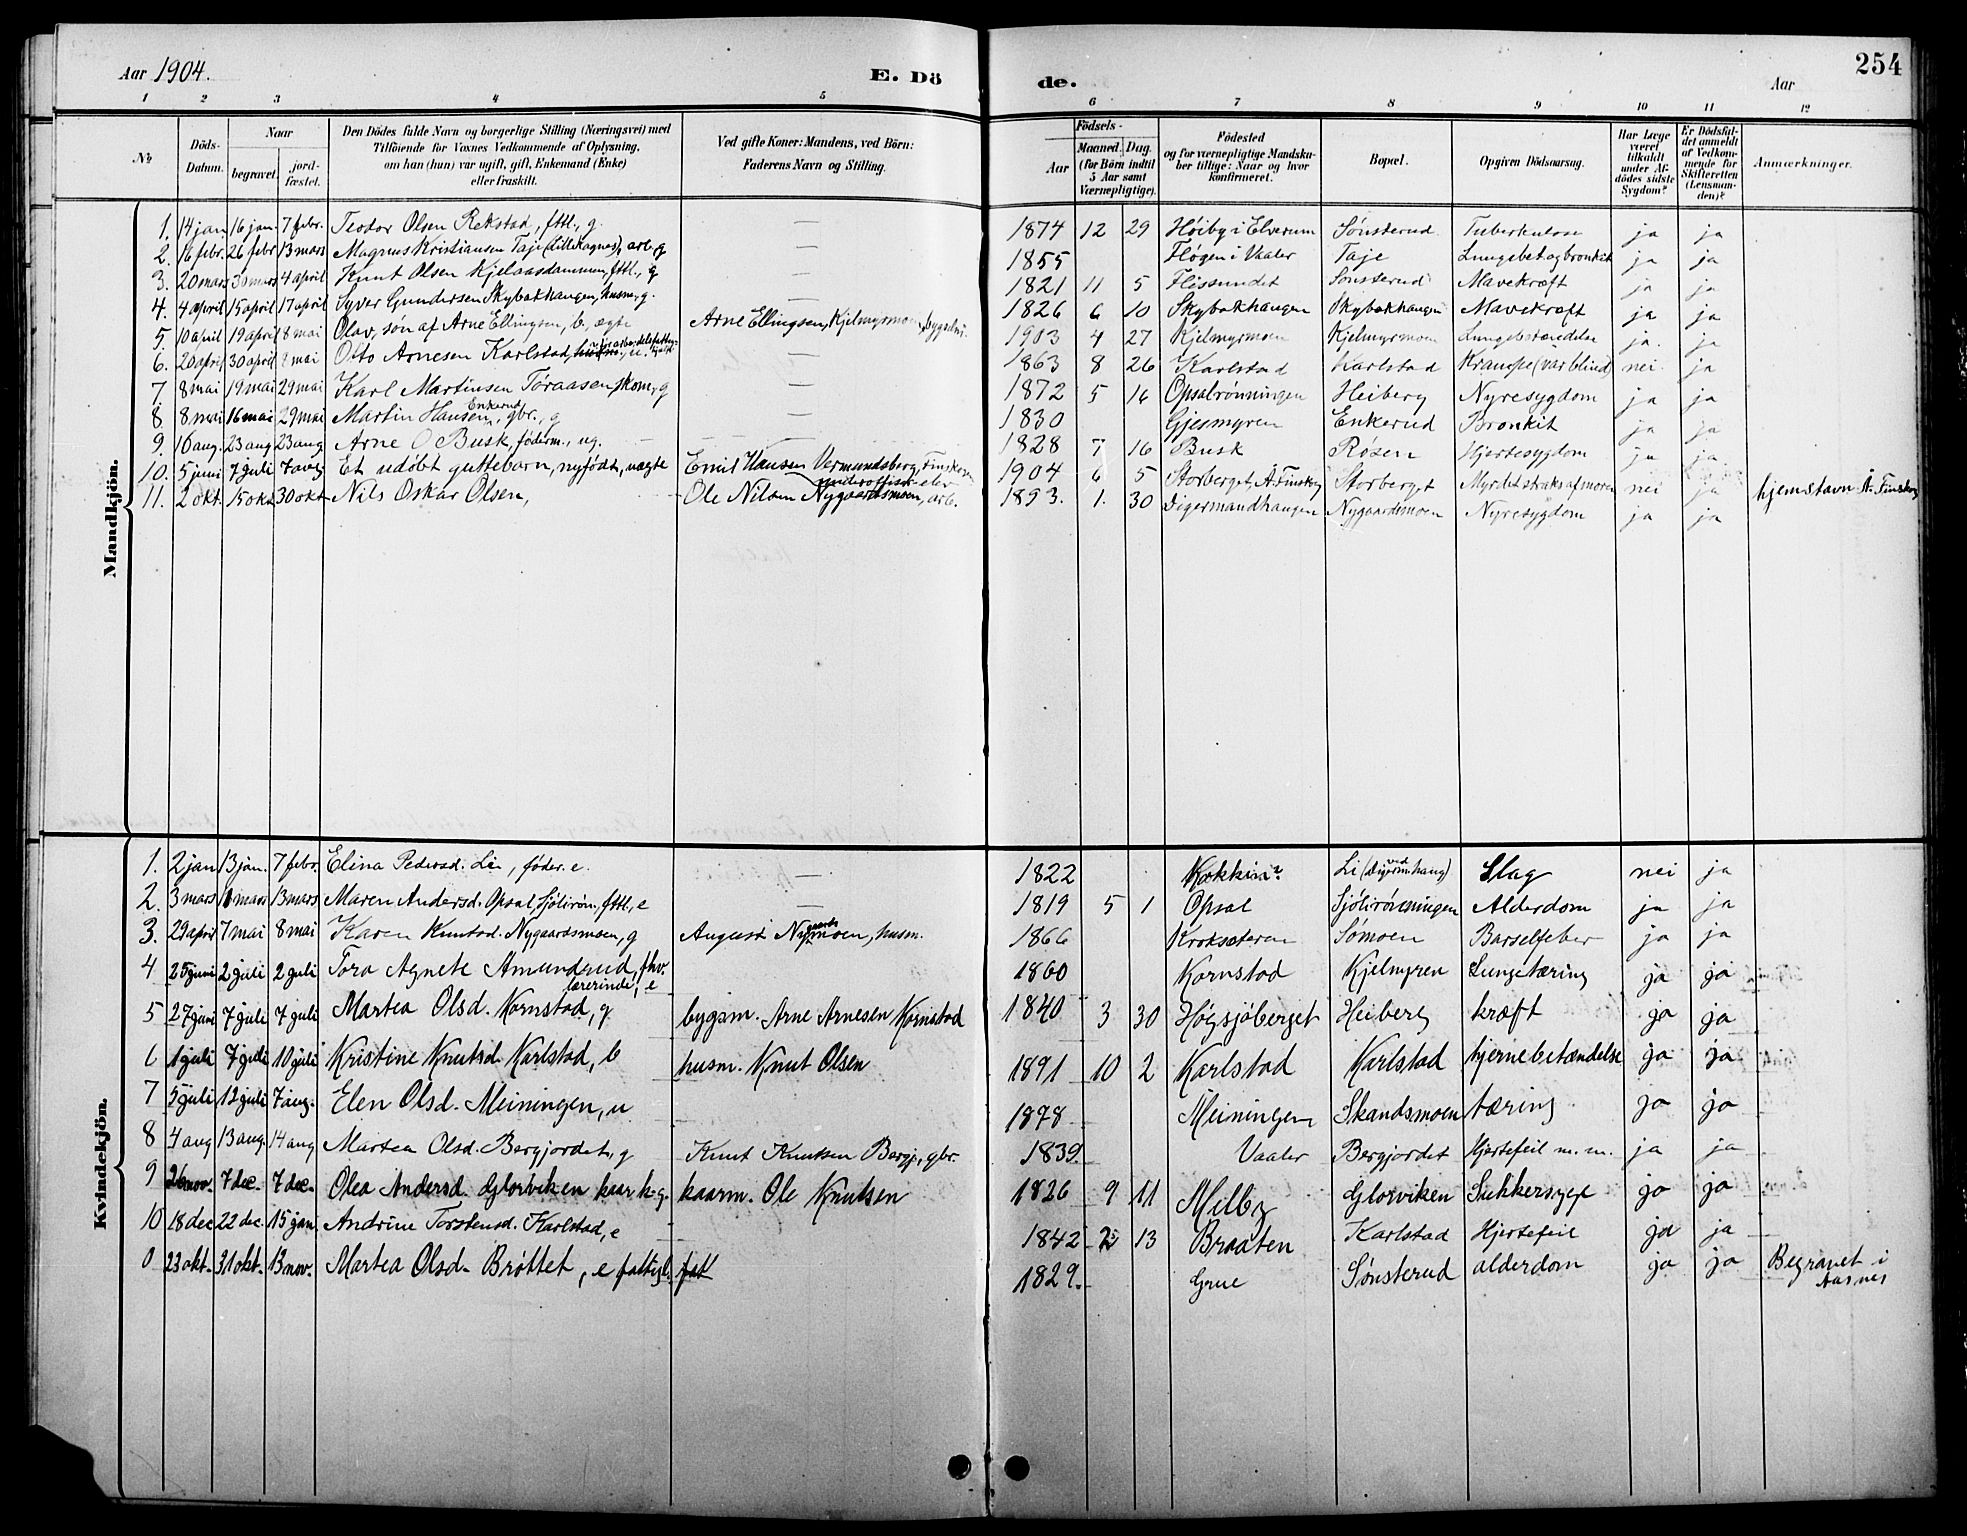 Aar 1904. E. Dö de. Aar 254
1 2 3 4 5 6 7 8 9 10 11 12
No
Döds-Datum.
Naar
begravet.
jord-fæstet.
Den Dödes fulde Navn og borgerlige Stilling (Næringsvei) med
Tilföiende for Voxnes Vedkommende af Oplysning,
om han (hun) var ugift, gift, Enkemand (Enke)
eller fraskilt.
Ved gifte Koner: Mandens, ved Börn:
Faderens Navn og Stilling.
Födsels-
Aar
Maaned. Dag.
(for Börn indtil
5 Aar samt
Værnepligtige).
Födested
og for værnepligtige Mandsku-
ber tillige: Naar og hvor
konfirmeret.
Bopæl.
Opgiven Dödsaarsag.
Har Læge
været
tilkaldt
under Af-
dödes sidste
Sygdom?
Er Dödsfal-
det anmeldt
af Vedkom-
mende for
Skifteretten
(Lensman-
den)?
Anmærkninger.
Mandkjön.
1. 14 jan 16 jan. 7 febr. Teodor Olsen Rekstad, fttl., g. — 1874 12 29 Höiby i Elverum Sønsterud Tuberkulose ja ja
2. 16 febr. 26 febr 13 mars Magnus Kristiansen Taje (Lillekagnes), arb. g — 1855 Fløgen i Vaaler Taje Lungebet og bronkit ja ja
3. 20 mars 30 mars 4 april Knut Olsen Kjelaasdammen, fttl., g — 1821 11 5 Flissundet Sønsterud Mavekræft ja ja
4. 4 april 15 april 17 april Syver Gundersen Skybakhaugen, husm., g. — 1826 6 10 Skybakhaugen Skybakhaugen Mavekræft ja ja
5. 10 april 19 april 8 mai Olav, søn af Arne Ellingsen, b., ægte Arne Ellingsen, Kjelmyrmoen, bygselm. 1903 4 27 Kjelmyrmoen Kjelmyrmoen Lungebetændelse ja. ja
6. 20 april 30 april 8 mai Otto Arnesen Karlstad, u. — 1863 8 26 Karlstad Karlstad Krampe (var blind) nei ja
7 8 mai 19 mai 29 mai Karl Martinsen Tøraasen, skom., g 1872 5 16 Opsalrønningen Heiberg Nyresygdom ja ja
8 8 mai 16 mai 29 mai Martin Hansen Enkerud, gbr., g — 1830 Gjesmyren Enkerud Bronkit ja ja
9. 16 aug. 23 aug 23 aug Arne O Busk, føderm., ug. — 1828 7 16 Busk Røsen Hjertesygdom ja ja
10. 5 juni 7 juli 7 aug Et udøbt guttebarn, nyfødt, uægte Emil Hansen Vermundsberg, Finskoven underoffiser-elev 1904 6 5 Storberget, Å. Finskog Storberget Myrdet straks af moren nei ja hjemstavn Å. Finskog
11. 2 okt. 15 okt 30 okt. Nils Oskar Olsen, Ole Nilsen Nygaardsmoen, arb. 1893. 1. 30 Digermandhaugen Nygaardsmoen Nyresygdom ja ja
Kvindekjön.
1. 2 jan 13 jan. 7 febr. Elina Pedersd. Li, føder. e. — 1822 Kokkin? Li (ved Digermhaug) Slag nei ja
2. 3 mars 11 mars 13 mars Maren Andersd. Opsal, Sjølirøn., fttl., e — 1819 5 1 Opsal Sjølirønningen Alderdom ja ja
3. 29 april 7 mai 8 mai Karen Knutsd. Nygaardsmoen, g August Nygaardsmoen, husm. 1866 Kroksæteren Sømoen Barselfeber ja ja
4 25 juni 2 juli 2 juli Tora Agnete Amundrud, fhv. lærerinde, e 1860 Kornstad Kjelmyren Lungetæring ja ja
5 27 juni 7 juli 7 juli Martea Olsd. Kornstad, g bygsm. Arne Arnesen Kornstad 1840 3 30 Høgsjøberget Heiberg kræft ja ja
6 1 juli 7 juli 10 juli Kristine Knutsd. Karlstad, b husm. Knut Olsen 1891 10 2 Karlstad Karlstad hjernebetændelse ja ja
7 5 juli 12 juli 7 aug. Elen Olsd. Meiningen, u — 1878 Meiningen Skandsmoen tæring ja ja
8 4 aug 13 aug. 14 aug Martea Olsd. Bergjordet, g Knut Knutsen Bergj., gbr. 1839. Vaaler Bergjordet Hjertefeil m. m. ja ja
9 26 nov. 7 dec. 7 dec. Olea Andersd. Glorviken kaark. g. kaarm. Ole Knutsen 1826 9 11 Melby Glorviken Sukkersyge ja ja
10 18 dec 22 dec. 15 jan. Andrine Torstensd. Karlstad, e 1842 2 13 Braaten Karlstad Hjertefeil ja ja
0 23 okt. 31 okt. 13 nov. Martea Olsd. Brøttet, e fattigl. 1829. Grue Sønsterud alderdom ja ja Begravet i Aasnes